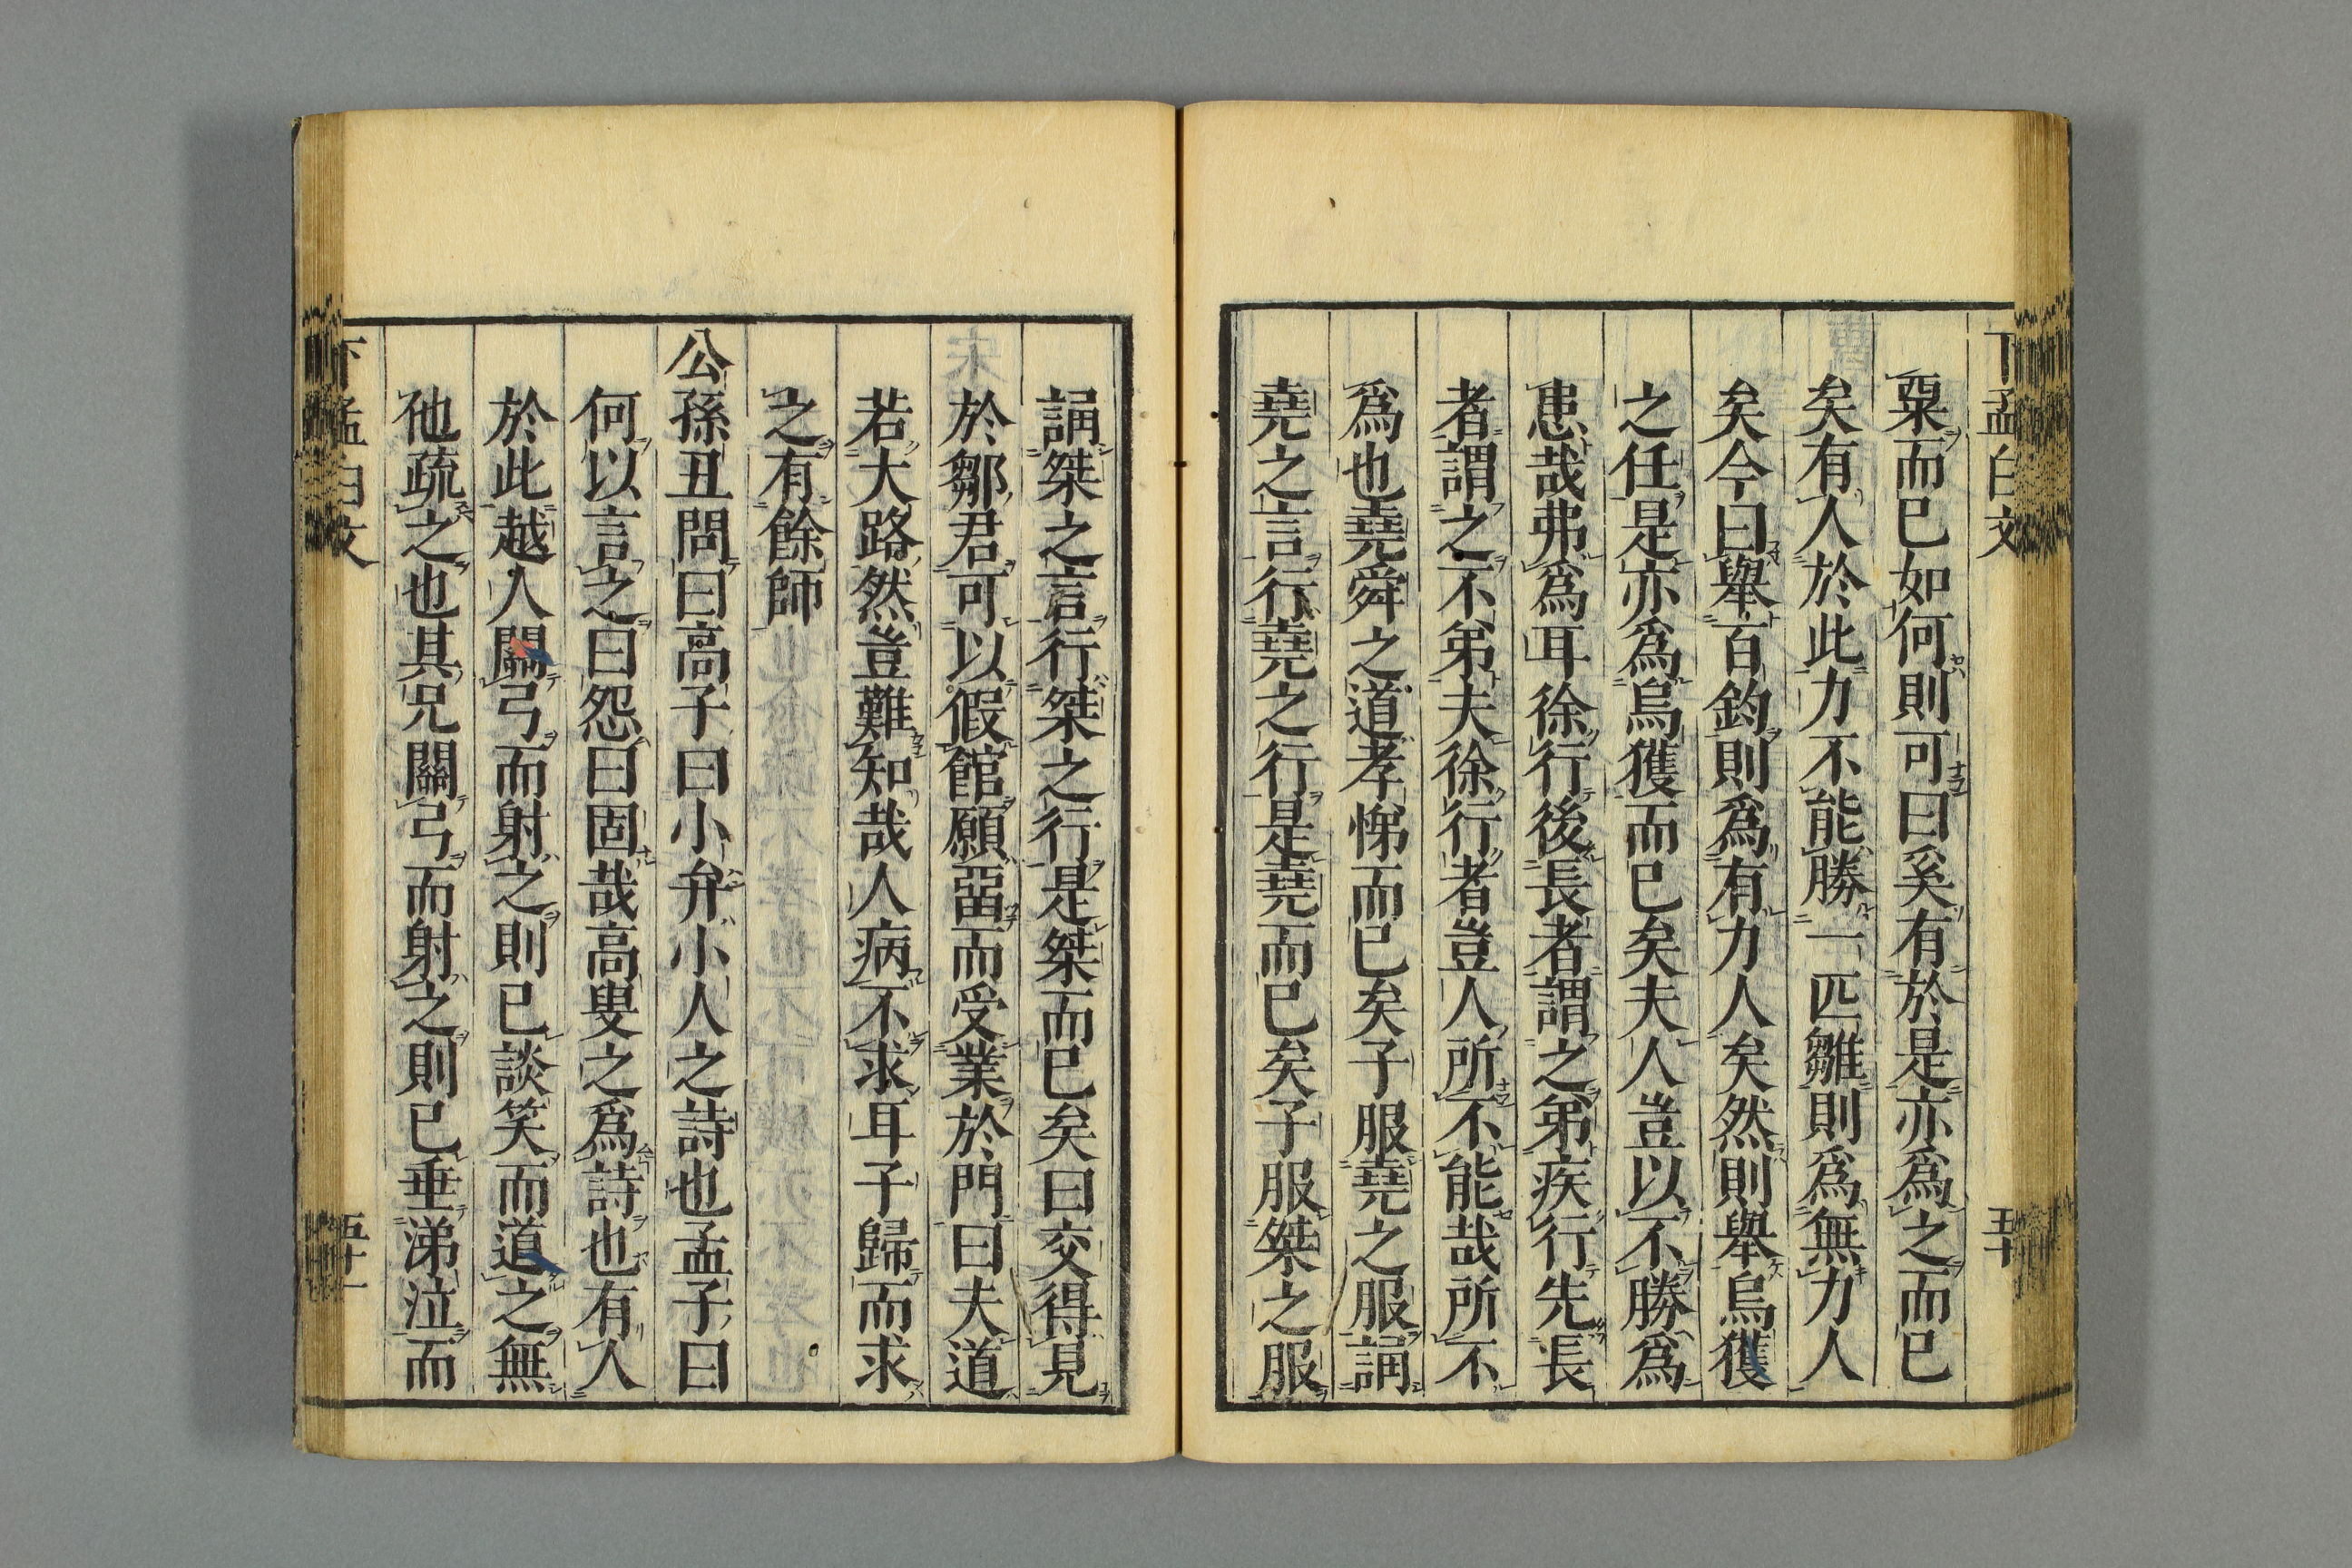 粟而已如何則可曰奚有於是亦爲之而已
矣有人於此力不能勝一匹雛則爲無力人
矣今曰舉百鈞則爲有力人矣然則舉烏獲
之任是亦爲烏獲而已矣夫人豈以不勝爲
患哉弗爲耳徐行後長者謂之弟疾行先長
者謂之不弟夫徐行者豈人所不能哉所不
爲也堯舜之道孝悌而已矣子服堯之服誦
堯之言行堯之行是堯而已矣子服桀之服
誦桀之言行桀之行是桀而已矣曰交得見
於鄒君可以假館願畱而受業於門曰夫道
若大路然豈難知哉人病不求耳子歸而求
之有餘師
公孫丑問曰高子曰小弁小人之詩也孟子曰
何以言之曰怨曰固哉高叟之爲詩也有人
於此越人關弓而射之則已談笑而道之無
他疏之也其兄關弓而射之則已垂涕泣而
下孟白文
五十一